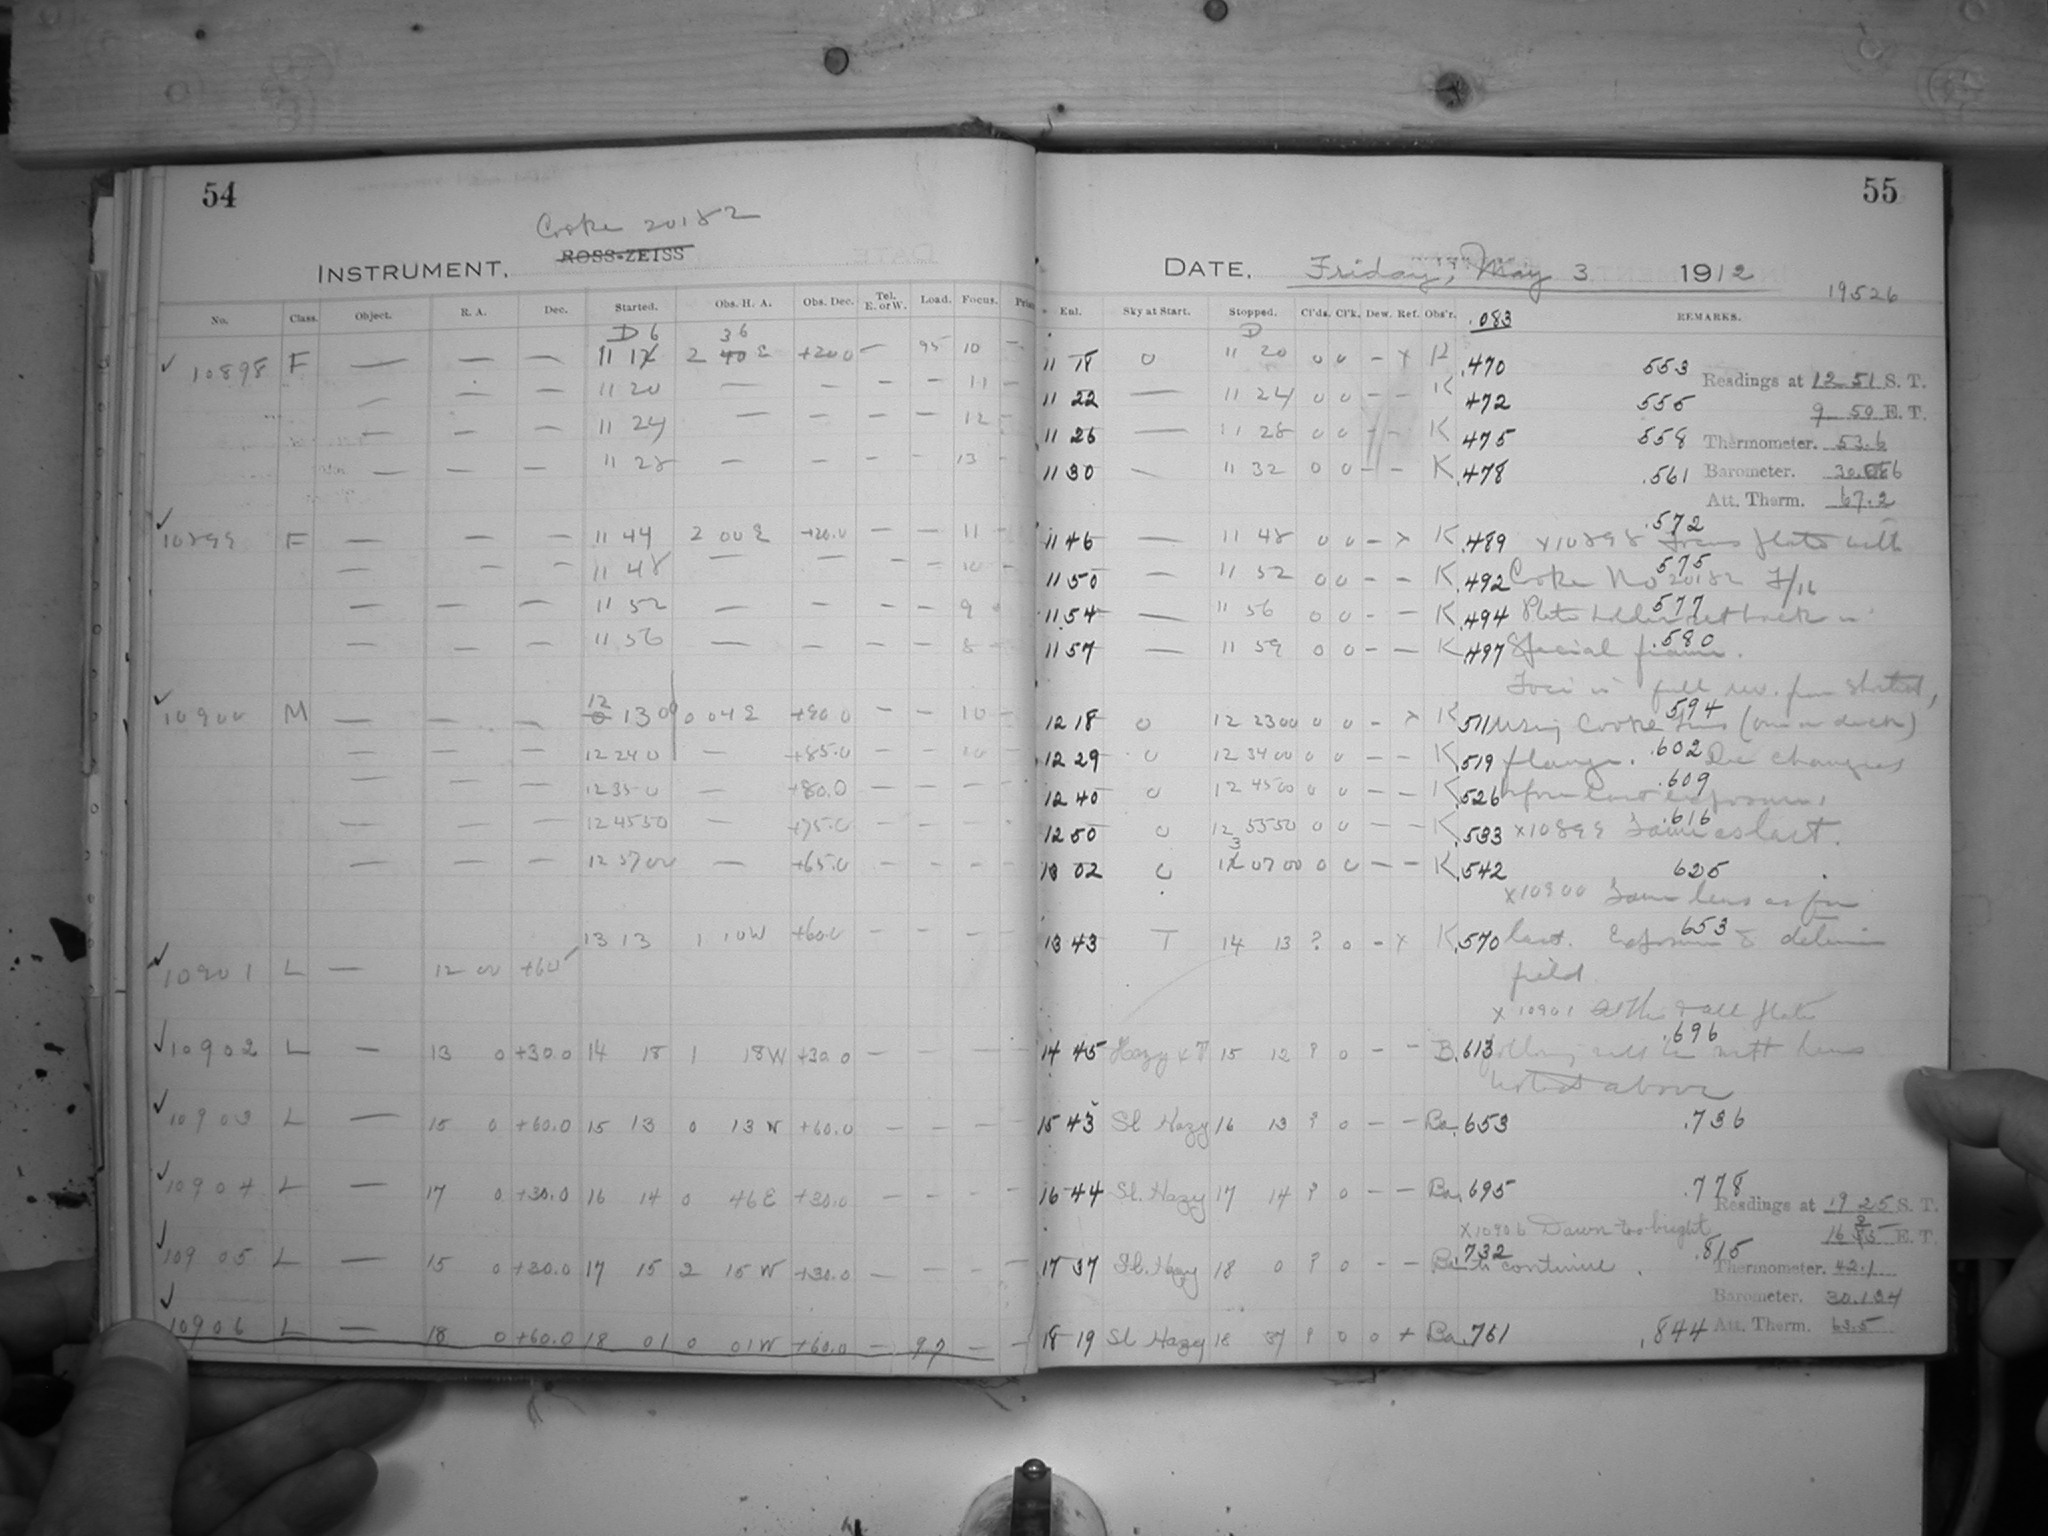 54
Cooke 20182
INSTRUMENT. ROSS-ZEISS
No. Class. Object. R. A. Dec. Started. Obs. H. A. Obs. Dec. Tel. E. or W. Load. Focus.
D 6 36
✓ 10898 F — — — 11 17 2 40 E +20.0 — 95 10 —
— — 11 20 — — — — 11 —
— — — 11 24 — — — — 12 —
— — — 11 28 — — — — 13 -
✓ 10899 F — — — 11 44 2 00 E +20.0 — — 11 —
— — — 11 48 — — — — 10 —
— — — 11 52 — — — — 9
— — — 11 56 — — — — 8 —
12
✓ 10900 M — — — 0 13 0 0 04 E +90 0 — — 10 —
— — — 12 24 0 — +85.0 — — 10 —
— — — 12 35 0 — +80.0 — — — —
— — — 12 45 50 — +75.0 — — — —
— — — 12 57 00 — +65.0 — — — —
13 13 1 10 W +60.0 — — — —
✓ 10901 L — 12 00 +60
✓ 10902 L — 13 0 +30.0 14 18 1 18 W +30.0 — — — —
✓ 10903 L — 15 0 +60.0 15 13 0 13 W +60.0 — — — —
✓ 10904 L — 17 0 +30.0 16 14 0 46 E +30.0 — — — —
✓ 10905 L — 15 0 +30.0 17 15 2 15 W +30.0 — — — —
✓ 10906 L — 18 0 +60.0 18 01 0 01 W +60.0 — 97 — —
55
DATE. Friday, May 3 1912
19526
Sky at Start. Stopped. Cl'ds. Cl'k. Dew. Ref. Obs'r. .083 REMARKS.
D
11 18 0 11 20 0 0 — x K .470 553
Readings at 12 51 S. T.
11 22 — 11 24 0 0 — — K 472 555
9 50 E. T.
11 26 — 11 28 0 0 — — K .475 558
Thermometer. 53.6
11 30 — 11 32 0 0 — — K .478 .561
Barometer.
Att. Therm. 67.2
11 46 — 11 48 0 0 — x K .489 .572
x10898 Focus plate with
11 50 — 11 52 0 0 — — K .492 575
Cooke No 20182 F/16
11 54 — 11 56 0 0 — — K .494 577
Plate holder set back in
11 57 — 11 59 0 0 — — K .497 .580
Special frame.
Foci in full rev. from
12 18 0 12 23 00 0 0 — x K .511 .594
using Cooke
12 29 0 12 34 00 0 0 — — K .519 .602
flange. Dec changed
12 40 0 12 45 00 0 0 — — K .526 .609
before each exposure.
12 50 0 12 55 50 0 0 — — K .533 .616
x10899 Same as last.
13 02 0 13 07 00 0 0 — — K .542 625
x10900 Same lens as for
13 43 T 14 13 ? 0 — x K .570 653
last. Exposure to determine
field
x10901
14 45 Hazy & T 15 12 ? 0 — — B .613 .696
with lens
noted above
15 43 Sl Hazy 16 13 ? 0 — — Ba. .653 .736
16 44 Sl. Hazy 17 14 ? 0 — — Ba. .695 .778
Readings at 19 25 S. T.
x10906 Dawn too bright
E. T.
17 37 Sl. Hazy 18 0 ? 0 — — Ba .732 .815
to continue.
Thermometer. 42.1
Barometer. 30.134
18 19 Sl Hazy 18 37 ? 0 0 + Ba .761 .844
Att. Therm. 63.5